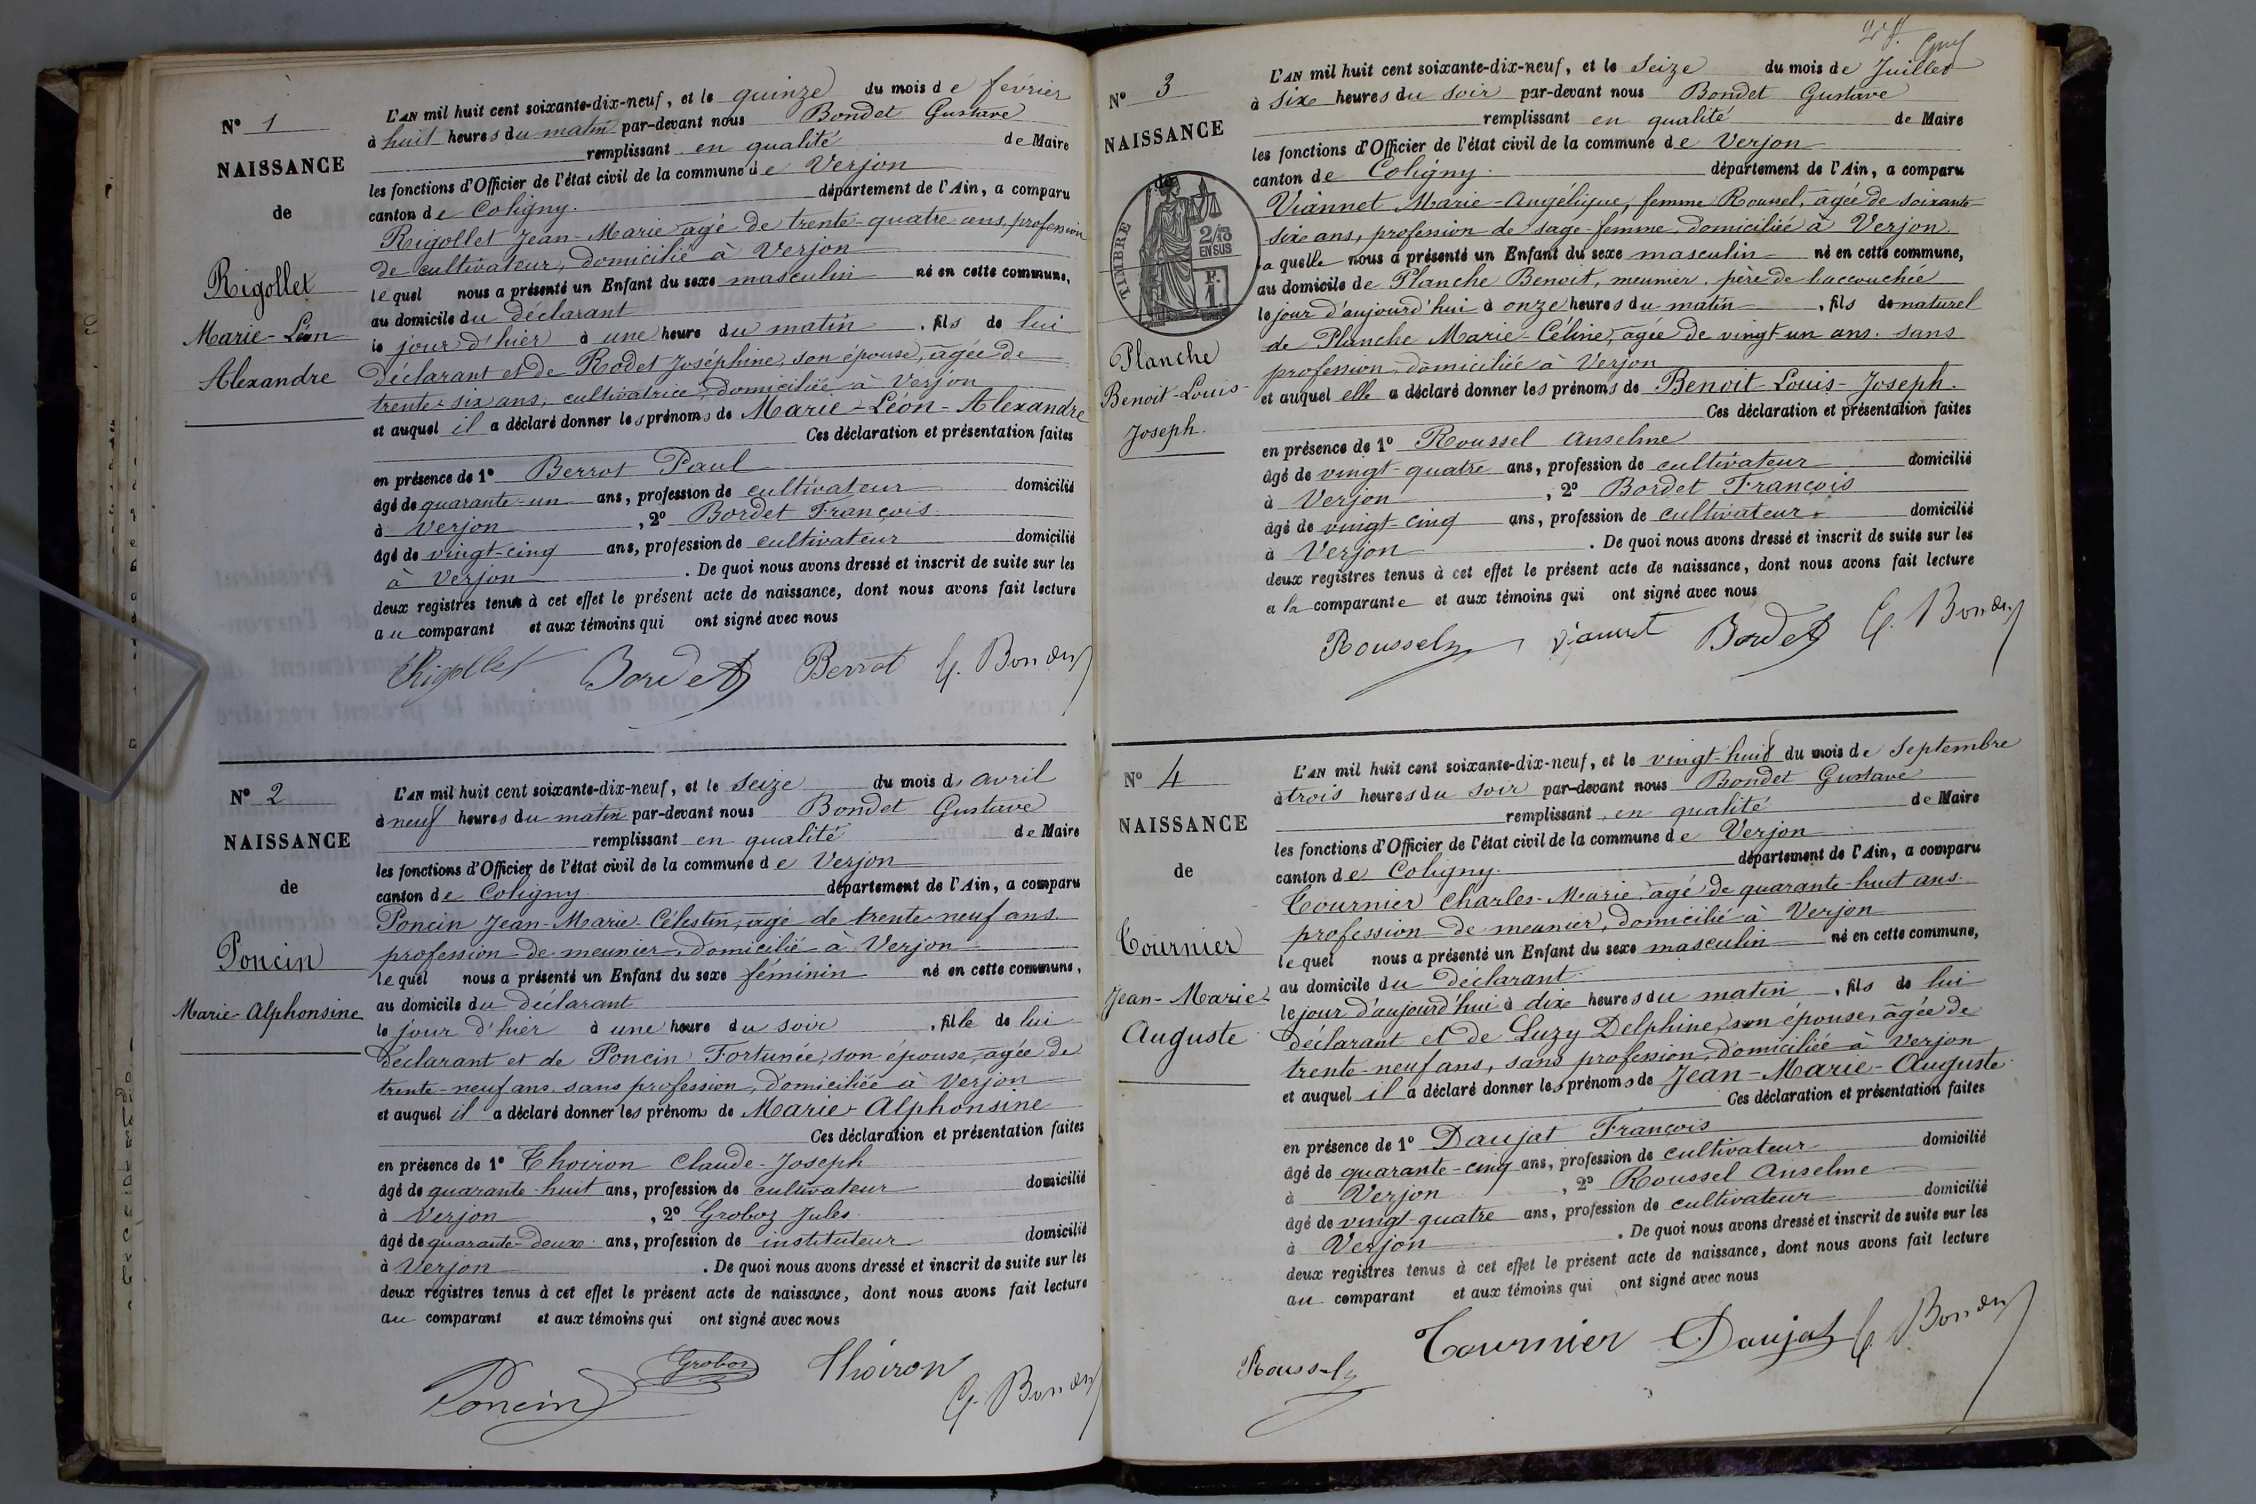 N° 1
NAISSANCE
de
Rigollet
Marie-Léon
Alexandre
L'AN mil huit cent soixante-dix-neuf, et le quinze du mois de février
à huit heures du matin par-devant nous Bondet Gustave
remplissant en qualité de Maire
les fonctions d'Officier de l'état civil de la commune de Verjon
canton de Coligny. département de l'Ain, a comparu
Rigollet Jean-Marie âgé de trente-quatre ans, profession
de cultivateur, domicilié à Verjon
lequel nous a présenté un Enfant du sexe masculin né en cette commune,
au domicile du déclarant
le jour d'hier à une heure du matin, fils de lui
déclarant et de Rodet Joséphine, son épouse, âgée de
trente-six ans, cultivatrice, domiciliée à Verjon
et auquel il a déclaré donner les prénoms de Marie-Léon-Alexandre
Ces déclaration et présentation faites
en présence de 1° Berrot Paul
âgé de quarante-un ans, profession de cultivateur domicilié
à Verjon, 2° Bordet François
âgé de vingt-cinq ans, profession de cultivateur domicilié
à Verjon. De quoi nous avons dressé et inscrit de suite sur les
deux registres tenus à cet effet le présent acte de naissance, dont nous avons fait lecture
au comparant et aux témoins qui ont signé avec nous
Rigollet Bordet Berrot G. Bondet
N° 2
NAISSANCE
de
Poncin
Marie-Alphonsine
L'AN mil huit cent soixante-dix-neuf, et le seize du mois d avril
à neuf heures du matin par-devant nous Bondet Gustave
remplissant en qualité de Maire
les fonctions d'Officier de l'état civil de la commune de Verjon
canton de Coligny département de l'Ain, a comparu
Poncin Jean-Marie-Célestin, âgé de trente-neuf ans
profession de meunier, domicilié à Verjon
lequel nous a présenté un Enfant du sexe féminin né en cette commune,
au domicile du déclarant
le jour d'hier à une heure du soir, fille de lui
déclarant et de Poncin Fortunée, son épouse, âgée de
trente-neuf ans, sans profession, domiciliée à Verjon
et auquel il a déclaré donner les prénoms de Marie-Alphonsine
Ces déclaration et présentation faites
en présence de 1° Thoiron Claude-Joseph
âgé de quarante-huit ans, profession de cultivateur domicilié
à Verjon, 2° Groboz Jules
âgé de quarante-deux ans, profession de instituteur domicilié
à Verjon. De quoi nous avons dressé et inscrit de suite sur les
deux registres tenus à cet effet le présent acte de naissance, dont nous avons fait lecture
au comparant et aux témoins qui ont signé avec nous
Poncin Groboz Thoiron G. Bondet
N° 3
NAISSANCE
de
TIMBRE
2/10
EN SUS
F.
1.
Planche
Benoit-Louis-
Joseph.
L'AN mil huit cent soixante-dix-neuf, et le seize du mois de Juillet
à six heures du soir par-devant nous Bondet Gustave
remplissant en qualité de Maire
les fonctions d'Officier de l'état civil de la commune de Verjon
canton de Coligny. département de l'Ain, a comparu
Viannet Marie-Angélique, femme Roussel, âgée de soixante
six ans, profession de sage-femme, domiciliée à Verjon
laquelle nous a présenté un Enfant du sexe masculin né en cette commune,
au domicile de Planche Benoit, meunier, père de l'accouchée
le jour d'aujourd'hui à onze heures du matin, fils de naturel
de Planche Marie-Céline, âgée de vingt un ans, sans
profession, domiciliée à Verjon
et auquel elle a déclaré donner les prénoms de Benoit-Louis-Joseph.
Ces déclaration et présentation faites
en présence de 1° Roussel Anselme
âgé de vingt-quatre ans, profession de cultivateur domicilié
à Verjon, 2° Bordet François
âgé de vingt-cinq ans, profession de cultivateur domicilié
à Verjon. De quoi nous avons dressé et inscrit de suite sur les
deux registres tenus à cet effet le présent acte de naissance, dont nous avons fait lecture
a la comparante et aux témoins qui ont signé avec nous
Roussel Viannet Bordet G. Bondet
N° 4
NAISSANCE
de
Tournier
Jean-Marie-
Auguste
L'AN mil huit cent soixante-dix-neuf, et le vingt-huit du mois de Septembre
à trois heures du soir par-devant nous Bondet Gustave
remplissant en qualité de Maire
les fonctions d'Officier de l'état civil de la commune de Verjon
canton de Coligny. département de l'Ain, a comparu
Tournier Charles-Marie, âgé de quarante-huit ans
profession de meunier, domicilié à Verjon
lequel nous a présenté un Enfant du sexe masculin né en cette commune,
au domicile du déclarant
le jour d'aujourd'hui à dix heures du matin, fils de lui
déclarant et de Luzy Delphine, son épouse, âgée de
trente-neuf ans, sans profession, domiciliée à Verjon
et auquel il a déclaré donner les prénoms de Jean-Marie-Auguste
Ces déclaration et présentation faites
en présence de 1° Daujat François
âgé de quarante-cinq ans, profession de cultivateur domicilié
à Verjon, 2° Roussel Anselme
âgé de vingt-quatre ans, profession de cultivateur domicilié
à Verjon. De quoi nous avons dressé et inscrit de suite sur les
deux registres tenus à cet effet le présent acte de naissance, dont nous avons fait lecture
au comparant et aux témoins qui ont signé avec nous
Roussel Tournier Daujat G. Bondet